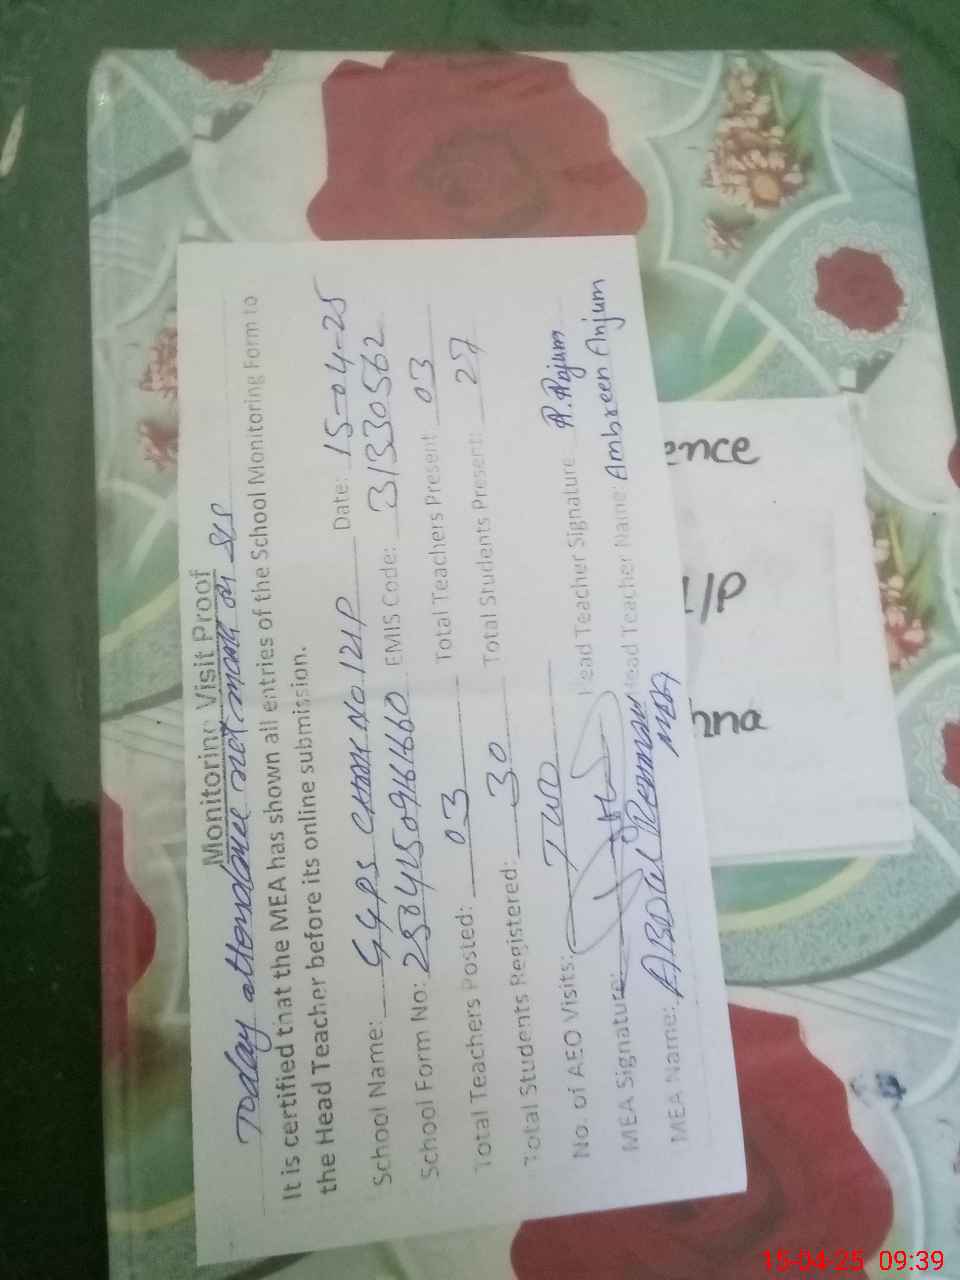 Monitoring Visit Proof
Today attendance not mark on SIS
It is certified that the MEA has shown all entries of the School Monitoring Form to
the Head Teacher before its online submission.
School Name: GGPS CHAK No. 121P Date: 15-04-25
School Form No: EMIS Code: 31330562
Total Teachers Posted: 03 Total Teachers Present 03
Total Students Registered: 30 Total Students Present: 27
No. of AEO Visits: TWO Head Teacher Signature
MEA Signature: Head Teacher Name: Ambreen Anjum
MEA Name: ABDUL REHMAN
MEA
ence
1/P
nna
15-04-25 09:39